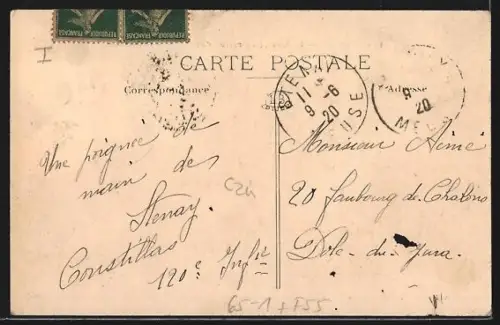 REPUBLIQUE FRANÇAISE REPUBLIQUE FRANÇAISE
I
CARTE POSTALE
Correspondance
Adresse
STENAY
11 -
9 -6
20
MEUSE
20
Une poignée de
main de
Stenay.
Coustillas
120e Inf ie
C24
Monsieur Aimé
20 Faubourg de Chalons
Dole-du-Jura.
65-1 + F55